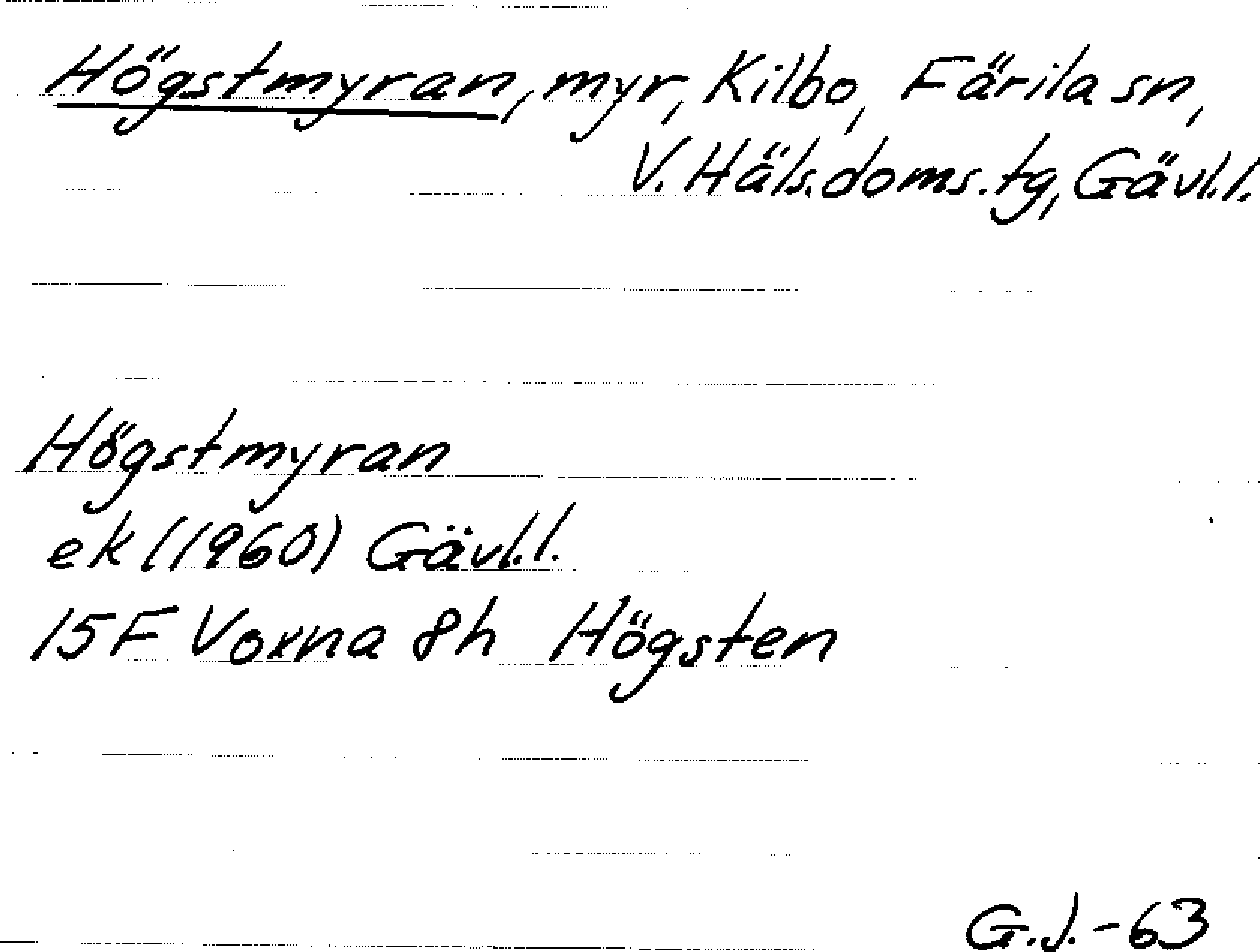 Högstmyran, myr, Kilbo, Färila sn,
V. Häls. doms. tg, Gävl. l.
Högstmyran
ek (1960) Gävl. l.
15F Voxna 8h Högsten
G.J.-63